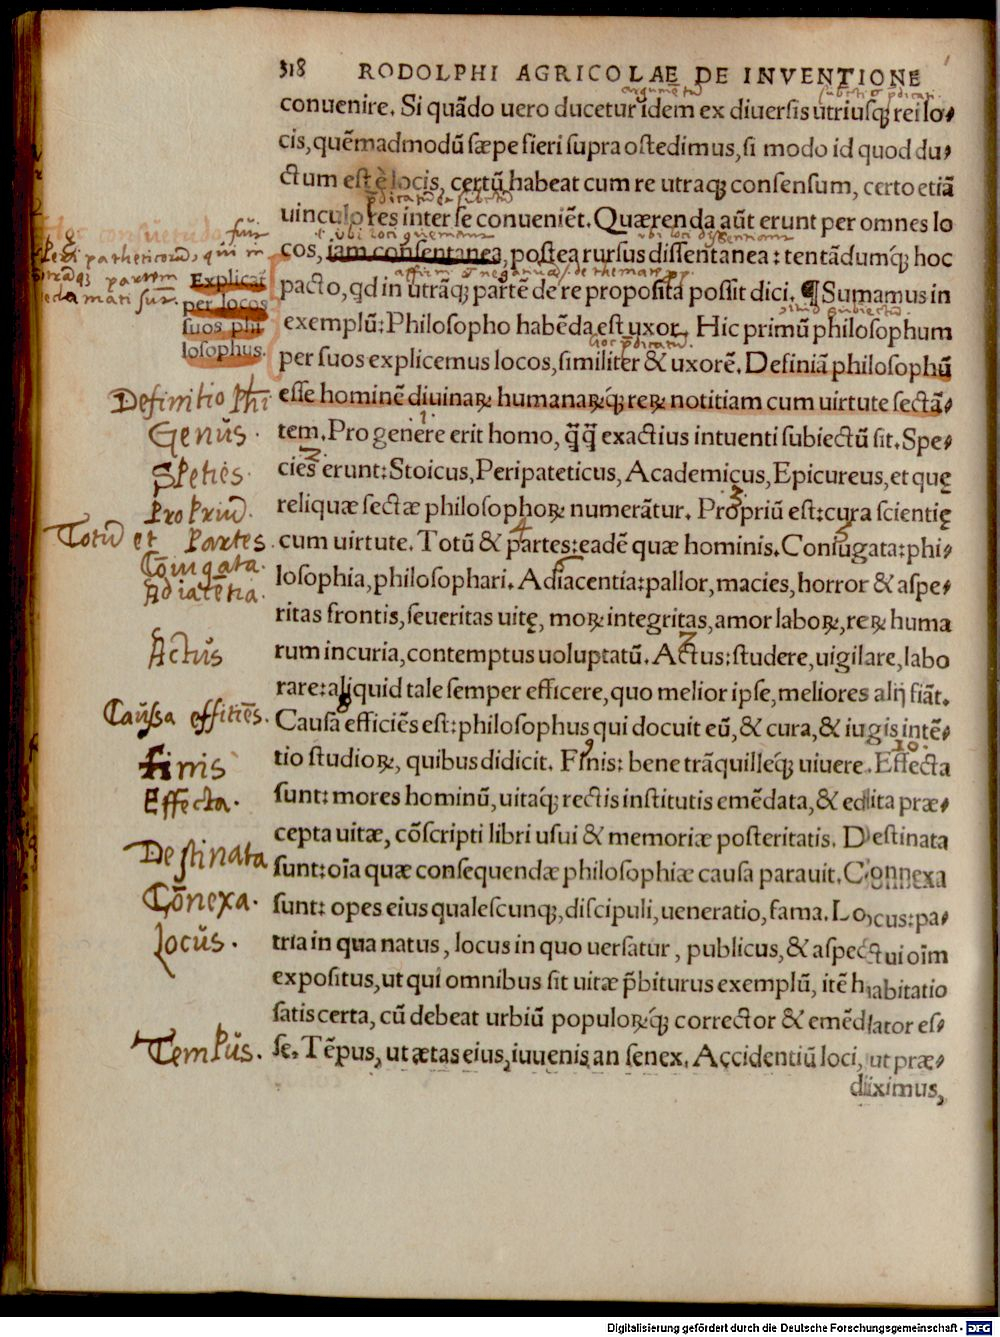 318 RODOLPHI AGRICOLAE DE INVENTIONE
conuenire. Si quãdo uero ducetur idem ex diuersis utriusq; rei lo-
cis, quẽmadmodũ sæpe fieri supra ostedimus, si modo id quod du-
ctum est è locis, certũ habeat cum re utraq; consensum, certo etiã
uinculo res inter se conueniẽt. Quærenda aũt erunt per omnes lo
cos, iam consentanea, postea rursus dissentanea: tentãdumq́; hoc
pacto, qd in utrãq; partẽ de re proposita possit dici. ¶ Sumamus in
exemplũ: Philosopho habẽda est uxor. Hic primũ philosophum
per suos explicemus locos, similiter & uxorẽ. Definiã philosophũ
esse hominẽ diuinaꝝ humanaꝝq́; reꝝ notitiam cum uirtute sectã-
tem. Pro genere erit homo, q̃q̃ exactius intuenti subiectũ sit. Spe-
cies erunt: Stoicus, Peripateticus, Academicus, Epicureus, et quę
reliquæ sectæ philosophoꝝ numerãtur. Propriũ est: cura scientię
cum uirtute. Totũ & partes: eadẽ quæ hominis. Coniugata: phi-
losophia, philosophari. Adiacentia: pallor, macies, horror & aspe-
ritas frontis, seueritas uitę, moꝝ integritas, amor laboꝝ, reꝝ huma
rum incuria, contemptus uoluptatũ. Actus: studere, uigilare, labo
rare: aliquid tale semper efficere, quo melior ipse, meliores alij fiãt.
Causa efficiẽs est: philosophus qui docuit eũ, & cura, & iugis intẽ-
tio studioꝝ, quibus didicit. Finis: bene trãquilleq́; uiuere. Effecta
sunt: mores hominũ, uitaq́; rectis institutis emẽdata, & edita præ-
cepta uitæ, cõscripti libri usui & memoriæ posteritatis. Destinata
sunt: oĩa quæ consequendæ philosophiæ causa parauit. Connexa
sunt: opes eius qualescunq;, discipuli, ueneratio, fama. Locus: pa-
tria in qua natus, locus in quo uersatur, publicus, & aspectui oĩm
expositus, ut qui omnibus sit uitæ p̃biturus exemplũ, itẽ habitatio
satis certa, cũ debeat urbiũ populoꝝq́; corrector & emẽdator es-
se. Tẽpus, ut ætas eius, iuuenis an senex. Accidentiũ loci, ut præ-
diximus,
Explicat
per locos
suos phi
losophus.
Definitio Phi
Genũs.
Speties.
Propriũ.
Totũ et Partes.
Coniugata.
Adiatẽtia.
Actũs
Caũssa effitiẽs.
Finis
Effecta.
Destinata
Cõnexa.
Locũs.
Tempũs.
1.
2.
3
4
7
8
9
10.
Digitalisierung gefördert durch die Deutsche Forschungsgemeinschaft - DFG